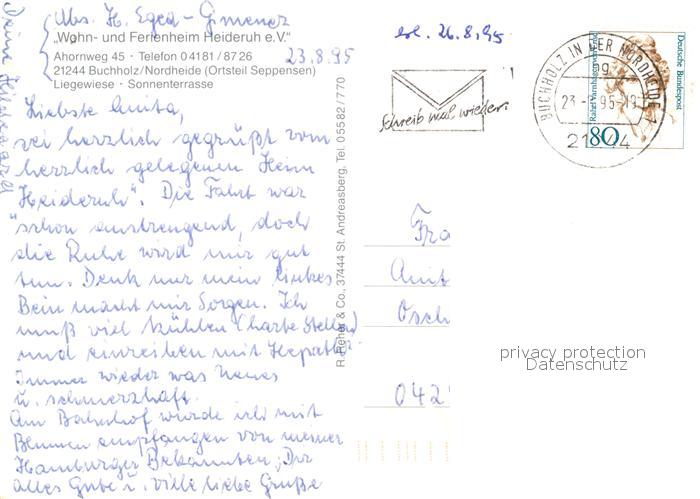 Abs. H. Egea-Gimenez
„Wohn- und Ferienheim Heideruh e.V.“
Ahornweg 45 · Telefon 0 41 81 / 87 26
21244 Buchholz/Nordheide (Ortsteil Seppensen)
Liegewiese · Sonnenterrasse
23.8.95
Liebste Anita,
sei herzlich gegrüßt vom
herrlich gelegenen Heim
„Heideruh“. Die Fahrt war
schon anstrengend, doch
die Ruhe wird mir gut
tun. Denk nur mein linkes
Bein macht mir Sorgen. Ich
muß viel kühlen (harte Stellen)
und einreiben mit
Immer wieder was Neues
u. schmerzhaft.
Am Bahnhof wurde ich mit
Blumen empfangen von meiner
Hamburger Bekannten; Dir
alles Gute u. viele liebe Grüße
Deine Hildegard
R. Reher & Co., 37444 St. Andreasberg, Tel. 05582 / 770
erl. 26.8.95
Schreib mal wieder.
BUCHHOLZ IN DER NORDHEIDE
bg
23.-8.95-19
21244
Deutsche Bundespost
Rahel Varnhagen von Ense
80
Fra
Anit
Osch
042
privacy protection
Datenschutz